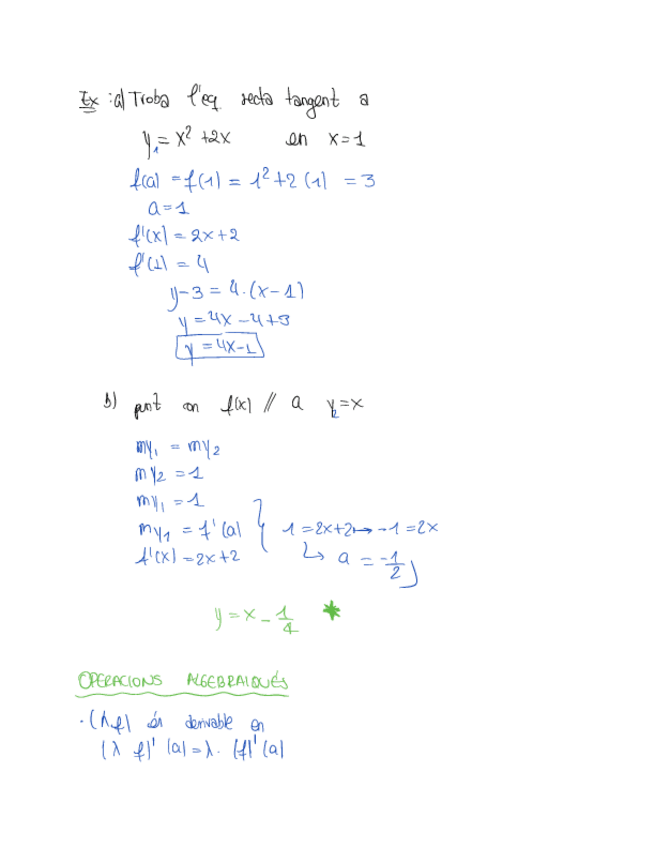 Ex : a) Troba l'eq recta tangent a
y₁ = x² + 2x en x = 1
f(a) = f(1) = 1² + 2(1) = 3
a = 1
f'(x) = 2x + 2
f'(1) = 4
y - 3 = 4·(x - 1)
y = 4x - 4 + 3
y = 4x - 1
b) punt on f(x) // a y₂ = x
my₁ = my₂
my₂ = 1
my₁ = 1
my₁ = f'(a) } 1 = 2x + 2 → -1 = 2x
f'(x) = 2x + 2 ↳ a = -1/2
y = x - 1/4 *
OPERACIONS ALGEBRAIQUES
· (λf) és derivable en
(λ f)' (a) = λ · (f)' (a)